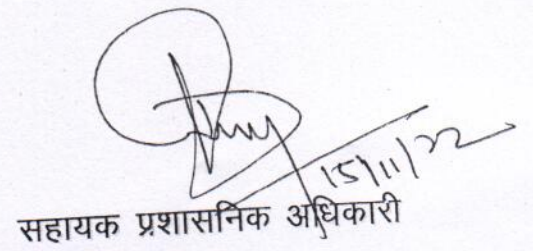 15/11/22
सहायक प्रशासनिक अधिकारी